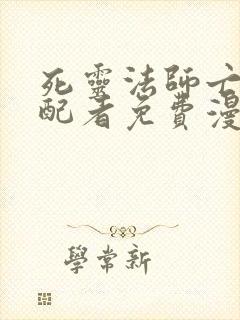 死靈法師亡
配者免費漫
學常新